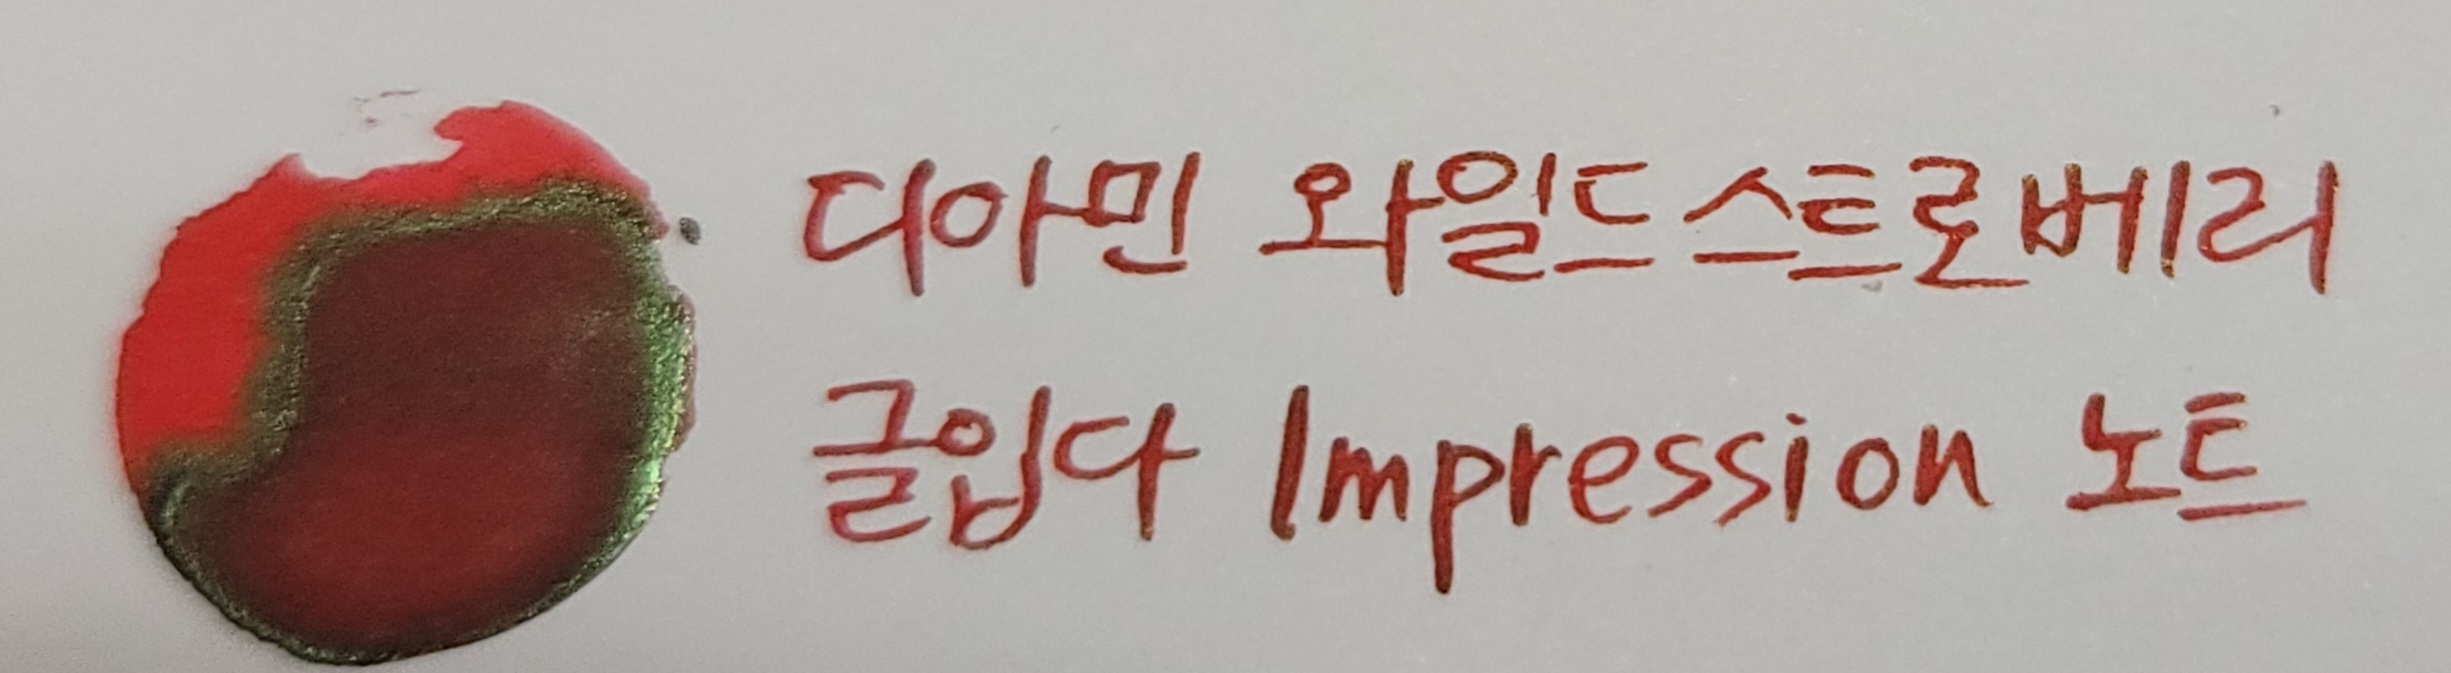 디아민 와일드스트로베리
글입다 Impression 노트